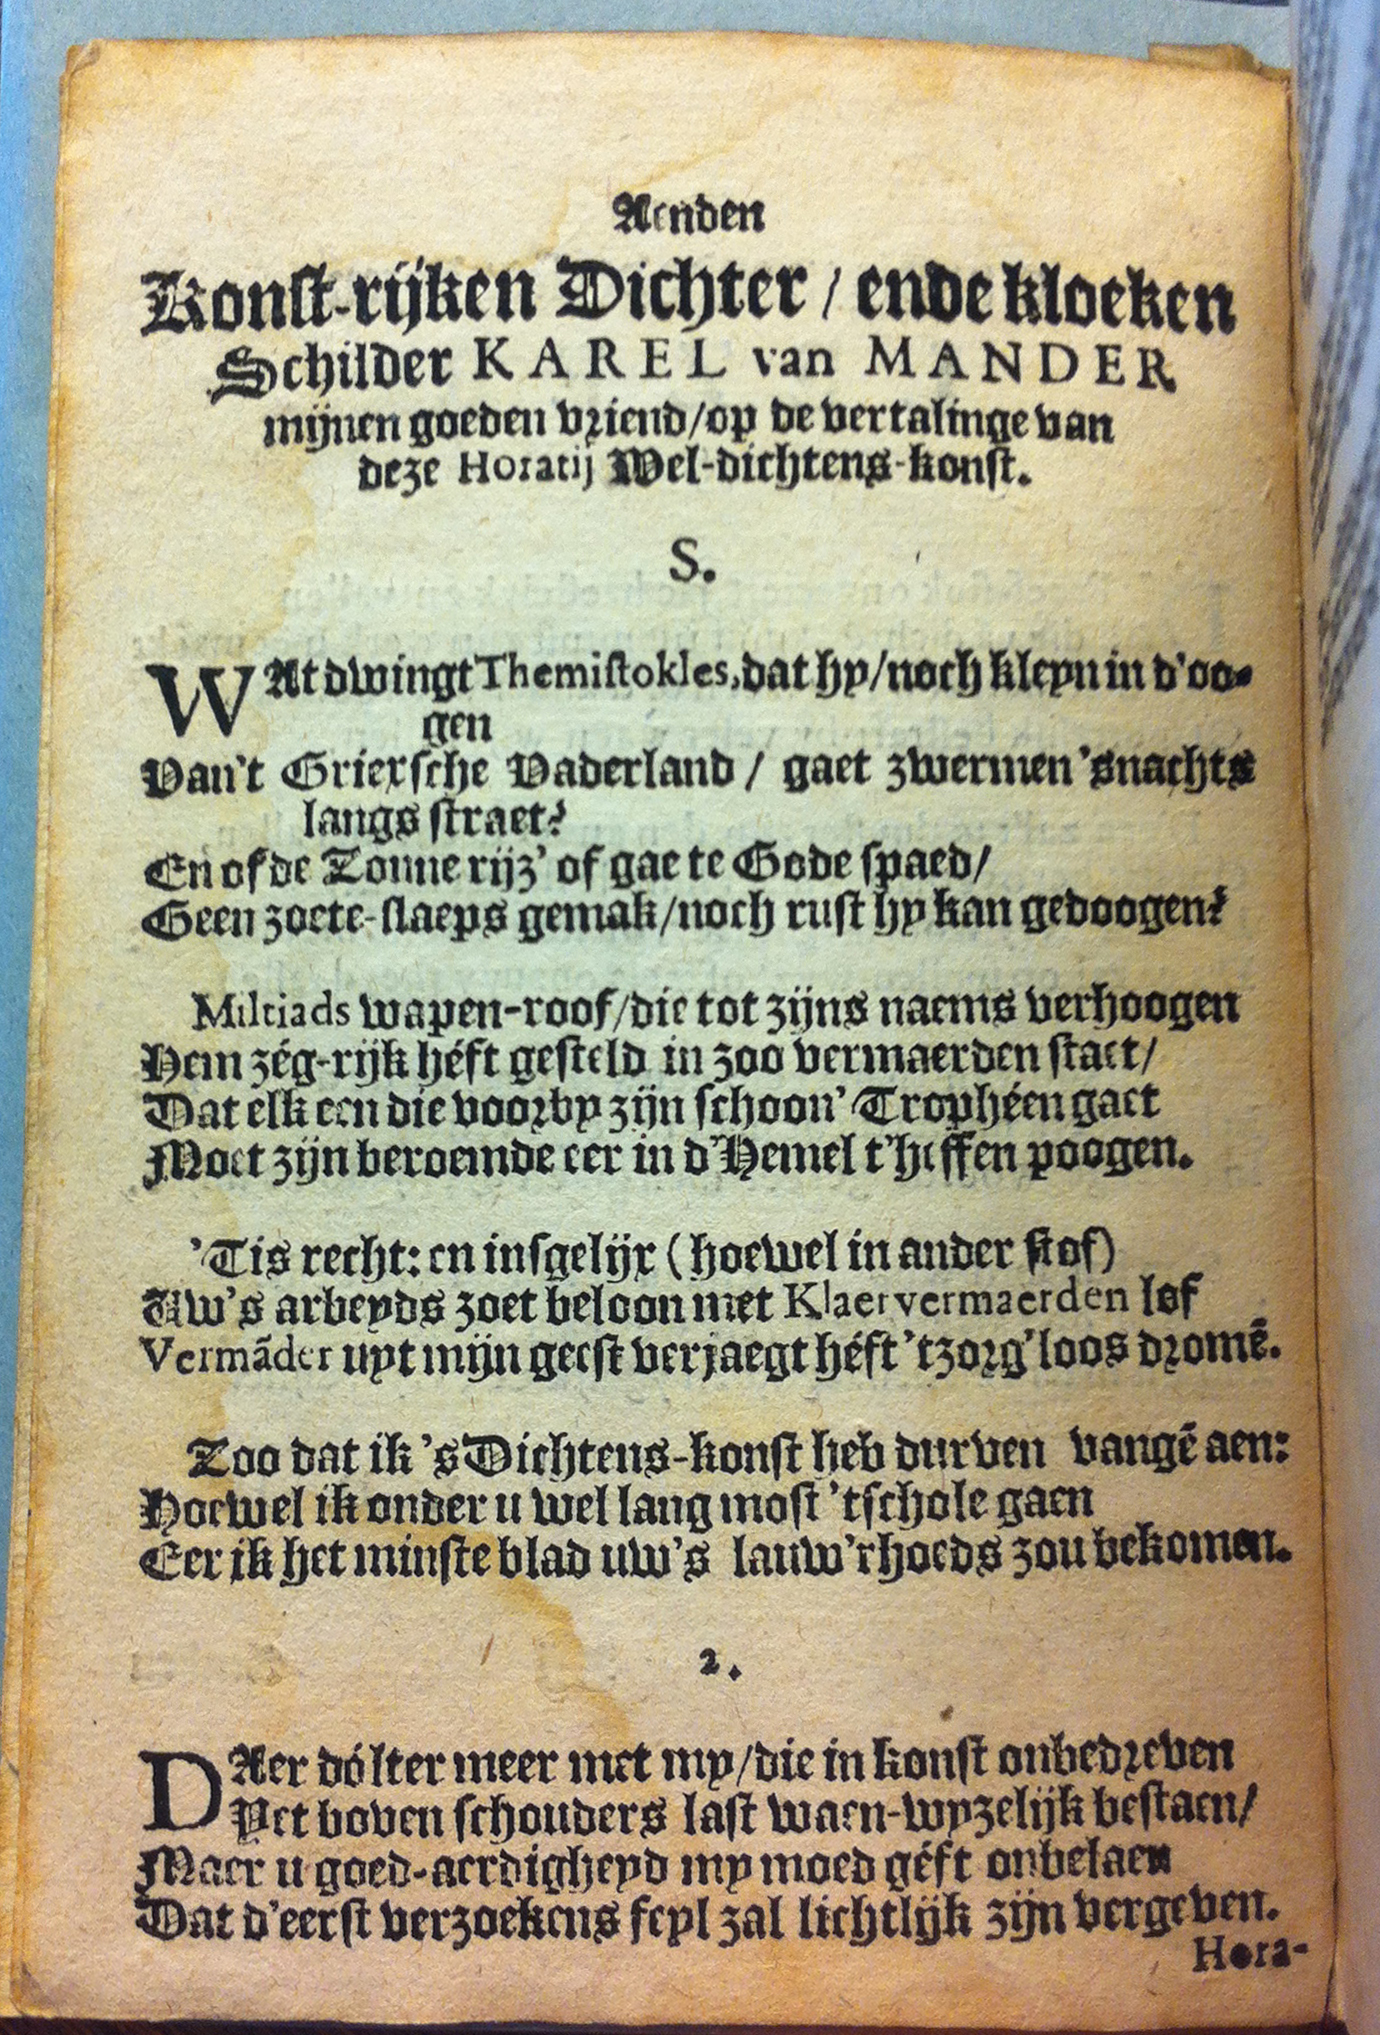 Aenden
Konst-rijken Dichter / ende kloeken
Schilder KAREL van MANDER
mijnen goeden vriend / op de vertalinge van
deze Horatij Wel-dichtens-konst.
S.
WAt dwingt Themistokles, dat hy / noch kleyn in d'oo-
gen
Van't Griexsche Vaderland / gaet zwermen 'snachts
langs straet?
En of de Zonne rijz' of gae te Gode spaed /
Geen zoete-slaeps gemak / noch rust hy kan gedoogen?
Miltiads wapen-roof / die tot zijns naems verhoogen
Hem zég-rijk héft gesteld in zoo vermaerden staet /
Dat elk een die voorby zijn schoon' Trophéen gaet
Moet zijn beroemde eer in d'Hemel t'heffen poogen.
'Tis recht: en insgelijx (hoewel in ander stof)
Uw's arbeyds zoet beloon met Klaervermaerden lof
Vermãder uyt mijn geest verjaegt héft 'tzorg'loos dromẽ.
Zoo dat ik 'sDichtens-konst heb durven vangẽ aen:
Hoewel ik onder u wel lang most 'tschole gaen
Eer ik het minste blad uw's lauw'rhoeds zou bekomen.
2.
DAer dólter meer met my / die in konst onbedreven
Yet boven schouders last waen-wyzelijk bestaen /
Maer u goed-aerdigheyd my moed géft onbelaen
Dat d'eerst verzoekens feyl zal lichtlijk zijn vergeven.
Hora-